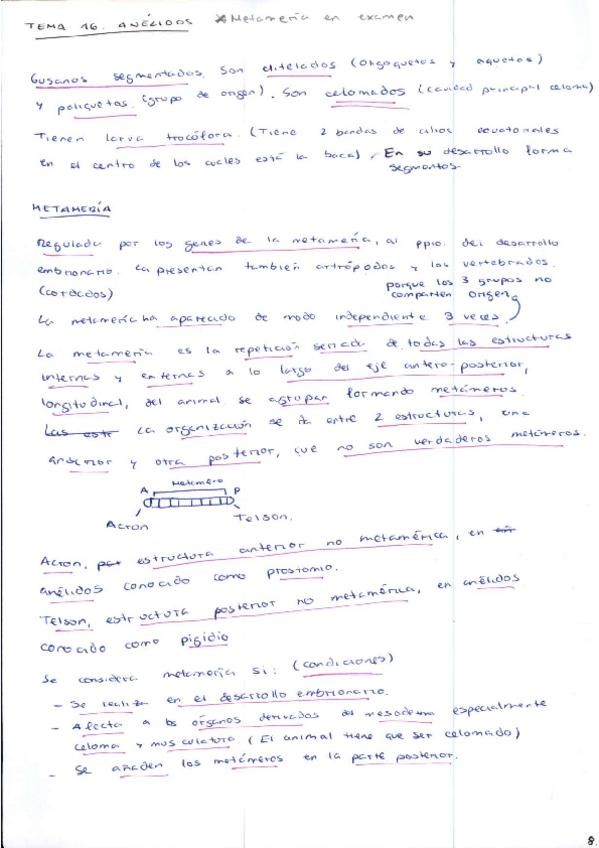 TEMA 16. ANÉLIDOS *Metamería en examen
Gusanos segmentados. Son clitelados (Oligoquetos y aquetos)
y poliquetos. (grupo de origen). Son celomados (cavidad principal celoma)
Tienen larva trocófora. (Tiene 2 bandas de cilios ecuatoriales
en el centro de los cuales está la boca). En su desarrollo forma
segmentos.
METAMERÍA
Regulada por los genes de la metamería, al ppio. del desarrollo
embrionario. La presentan también artrópodos y los vertebrados.
(cordados) porque los 3 grupos no
comparten origen
La metamería ha aparecido de modo independiente 3 veces.
La metamería es la repetición seriada de todas las estructuras
internas y externas a lo largo del eje antero-posterior,
longitudinal, del animal. Se agrupan formando metámeros.
Las estr La organización se da entre 2 estructuras, una
anterior y otra posterior, que no son verdaderos metámeros.
Metámero
A P
Acron Telson.
Acron, estructura anterior no metamérica, en
anélidos conocido como prostomio.
Telson, estructura posterior no metamérica, en anélidos
conocido como pigidio
Se considera metamería si: (condiciones)
- Se realiza en el desarrollo embrionario.
- Afecta a los órganos derivados del mesodermo especialmente
celoma y musculatura. (El animal tiene que ser celomado)
- Se añaden los metámeros en la parte posterior.
8